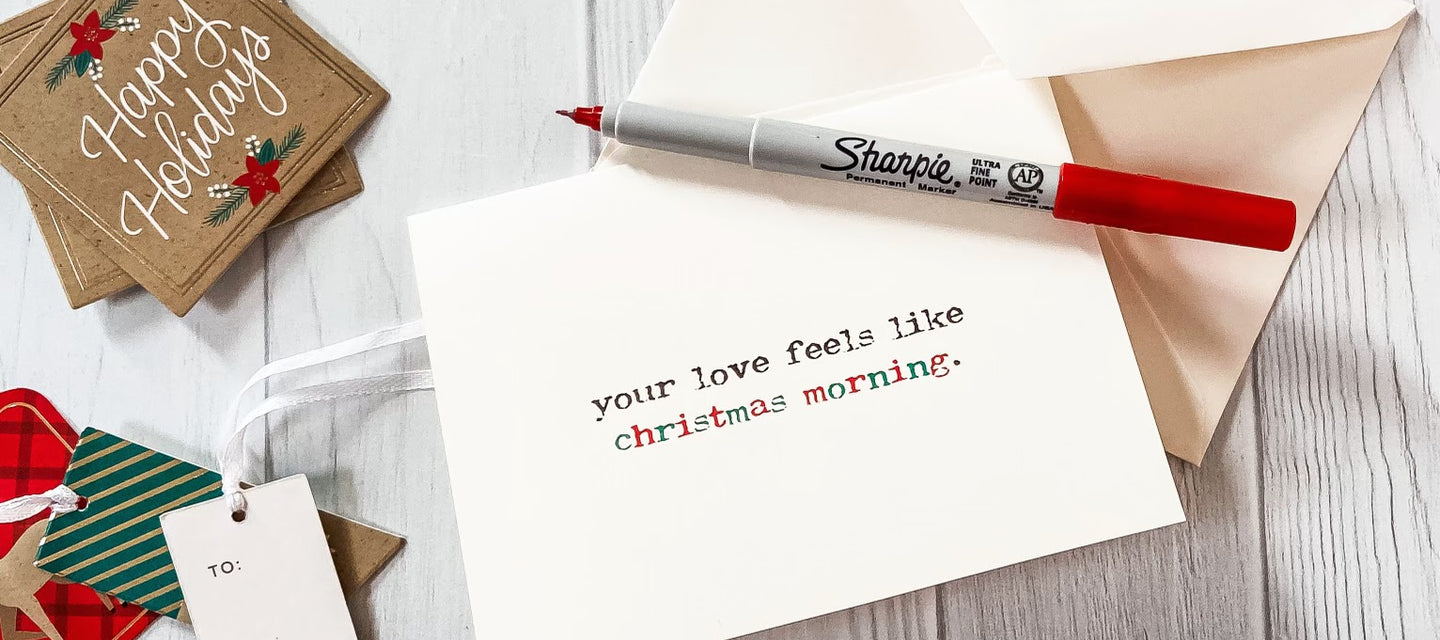 Happy
Holidays
Sharpie®
Permanent Marker
ULTRA
FINE
POINT
AP
your love feels like
christmas morning.
TO: